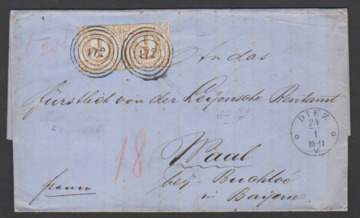 172 172
An das
fürstlich von der Leyensche Rentamt
DIEZ
24
1
10-11
V.
18
Waal
bey Buchloé
in Bayern
franco